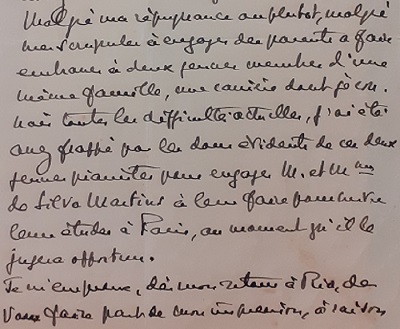 Malgré ma répugnance ou plutôt, malgré
mes scrupules à engager des parents à faire
embrasser à deux jeunes membres d'une
même famille, une carrière dont je con-
nais toutes les difficultés actuelles, j'ai été
assez frappé par les dons évidents de ces deux
jeunes pianistes pour engager M. et Mme
do Silva Martins à leur faire poursuivre
leurs études à Paris, au moment qu'il le
jugera opportun.
Je m'empresse, dès mon retour à Rio, de
vous faire part de mon impression, à raison